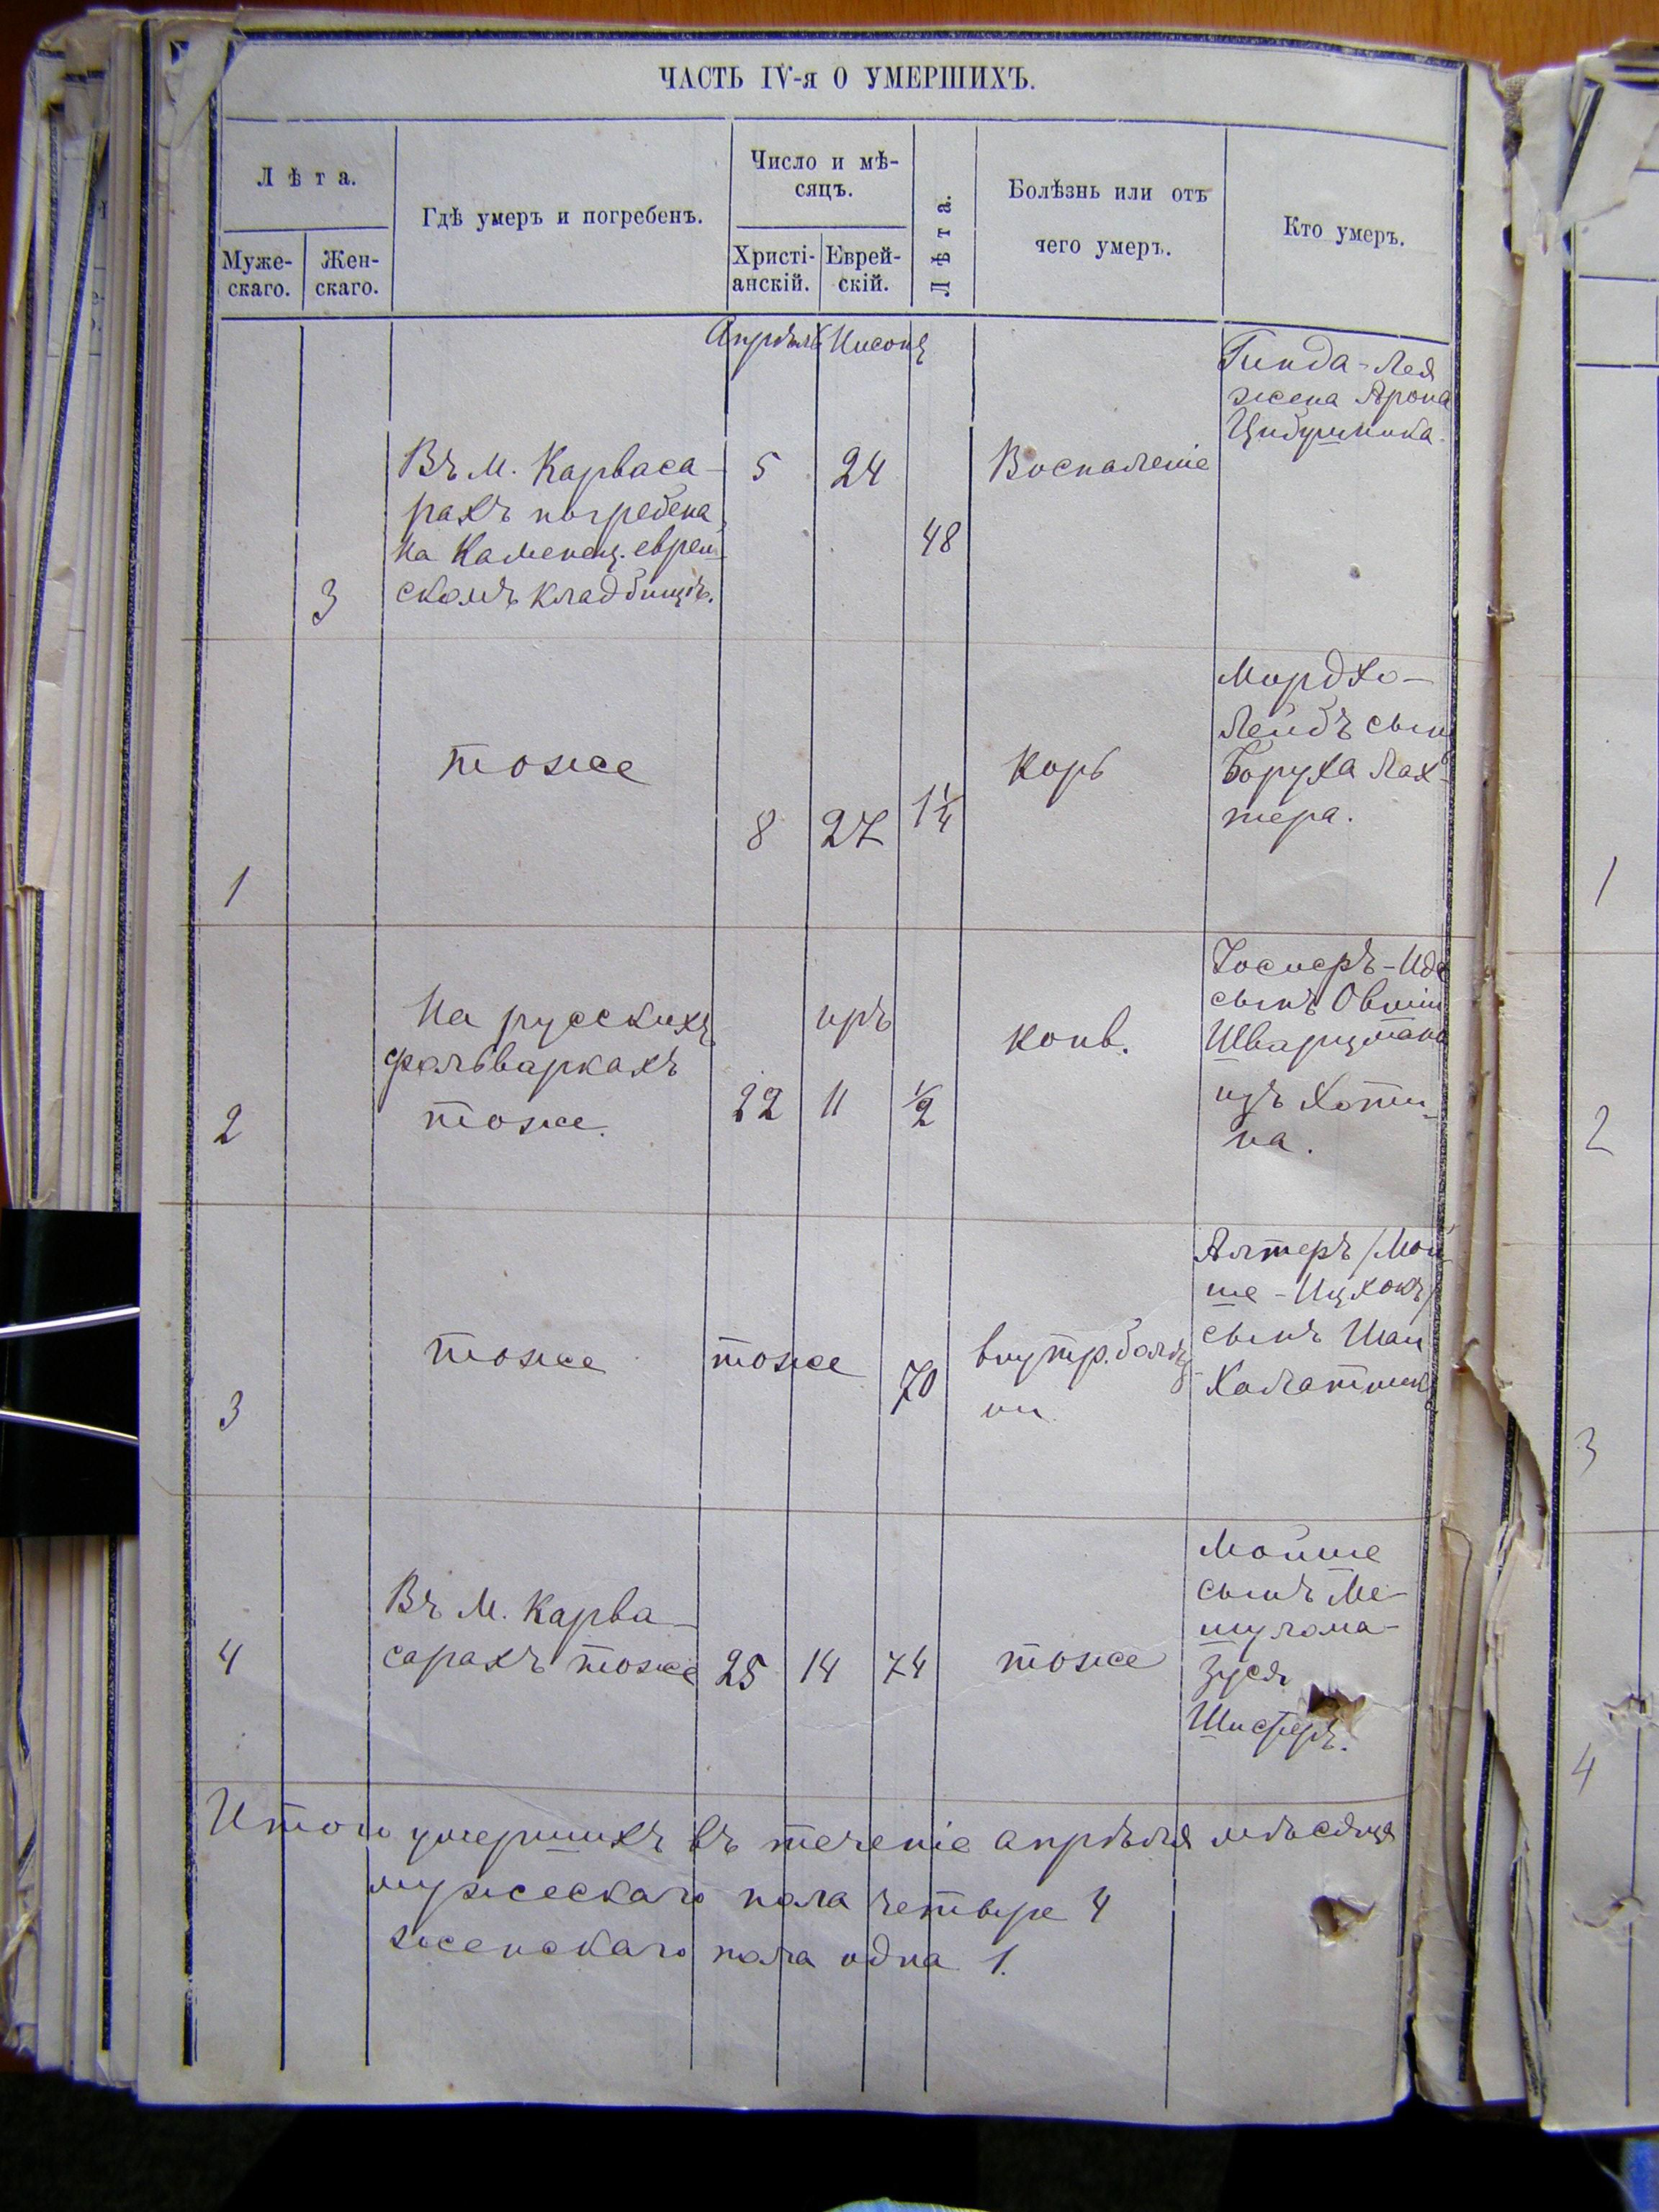 ЧАСТЬ IV-я О УМЕРШИХЪ.
Лѣта.
Муже-
скаго.
Жен-
скаго.
Гдѣ умеръ и погребенъ.
Число и мѣ-
сяцъ.
Христі-
анскій.
Еврей-
скій.
Лѣта.
Болѣзнь или отъ
чего умеръ.
Кто умеръ.
Апрѣль Нисонъ
3
Въ м. Карваса-
рахъ погребена
на Каменец. еврей-
скомъ кладбищѣ.
5
24
48
Воспаленіе
Гинда-Лея
жена Арона
1
тоже
8
27
1 1/4
Корь
Мордхо-
Лейбъ сынъ
Боруха Лах-
тера.
2
На русскихъ
фольваркахъ
тоже.
22
иръ
11
1/2
конв.
сынъ Овшии
Шварцмана
изъ Хоти-
на.
3
тоже
тоже
70
внутр. болѣз-
ни
Алтеръ /Мой-
ше-Ицхокъ/
сынъ Шаи
4
Въ м. Карва-
сарахъ тоже
25
14
74
тоже
Мойше
сынъ Ме-
шулома-
Зуся
Итого умершихъ въ теченіе апрѣля мѣсяца
мужескаго пола четыре 4
женскаго пола одна 1.
1
2
3
4